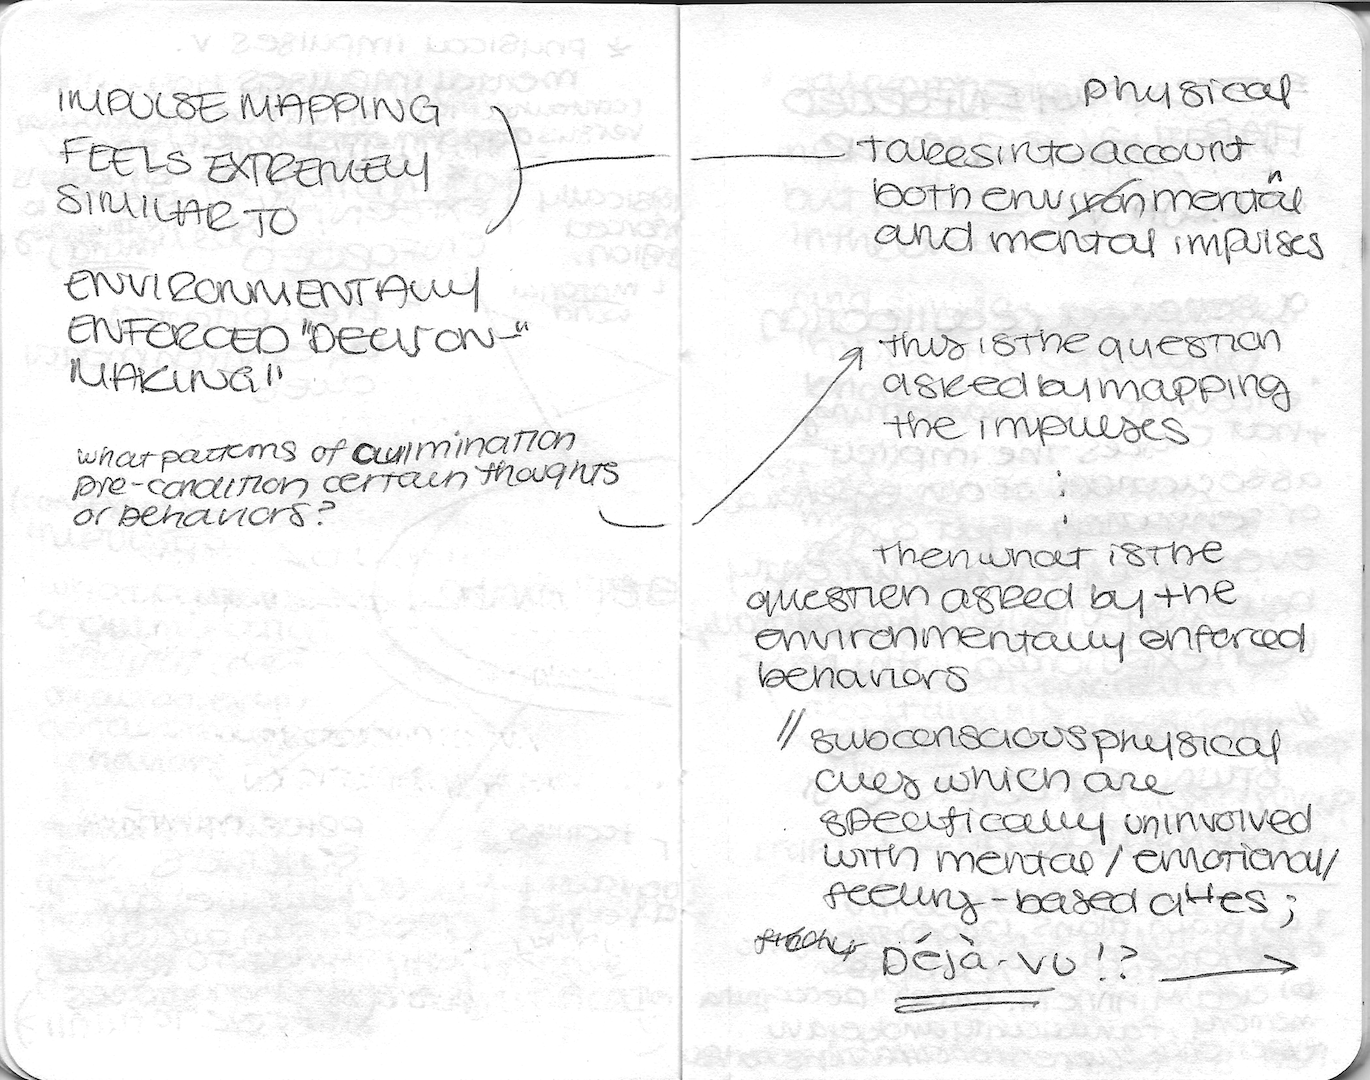 IMPULSE MAPPING
FEELS EXTREMELY
SIMILAR TO
ENVIRONMENTALLY
ENFORCED "DECISION-"
"MAKING"
what patterns of culmination
pre-condition certain thoughts
or behaviors?
physical
takes into account
both environmental
and mental impulses
this is the question
asked by mapping
the impulses
:
then what is the
question asked by the
environmentally enforced
behaviors
// subconscious physical
cues which are
specifically uninvolved
with mental / emotional /
feeling-based cites;
Déjà-vu!?